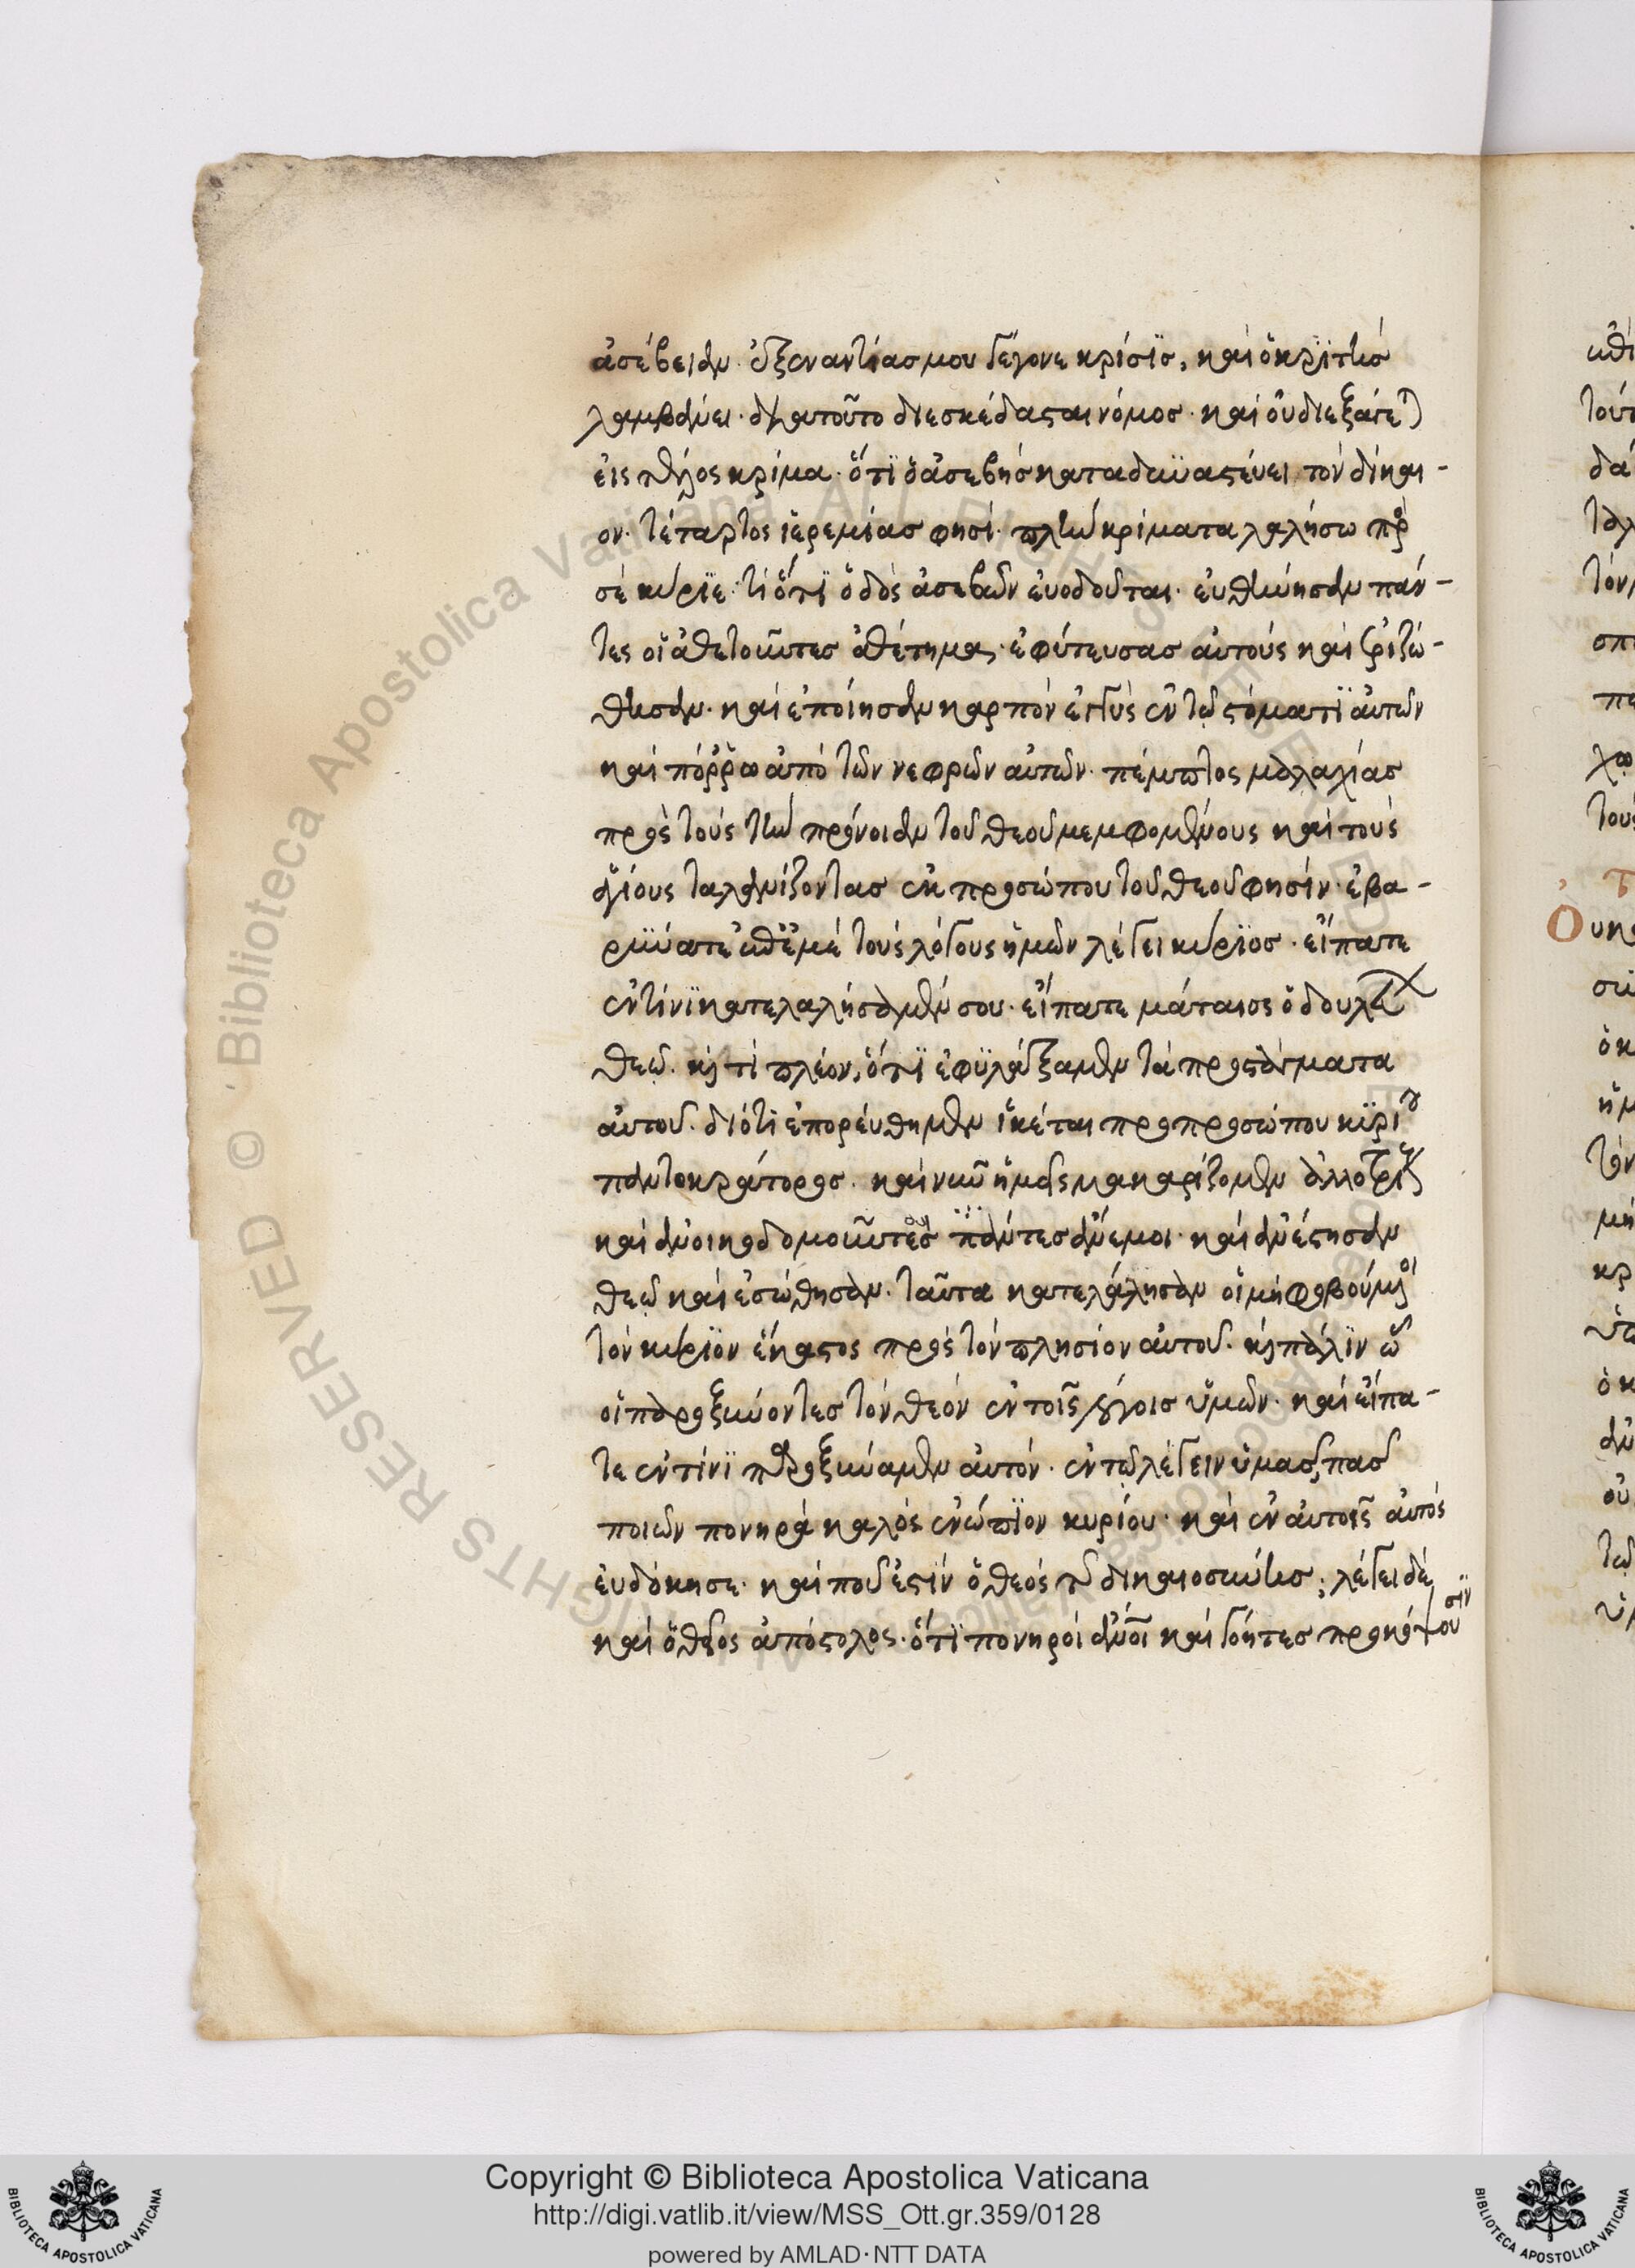 ἀσέβειαν· ἐξεναντίας μου γέγονε κρίσϊς, καὶ ὁ κρϊτὴσ
λαμβάνει· διατοῦτο διεσκέδασται νόμος· καὶ οὐ διεξάγε
εἰς τέλος κρίμα· ὅτϊ ὁ ἀσεβὴς καταδυναστεύει τὸν δίκαι-
ον· τέταρτος ἱερεμίας φησί· πλὴν κρίματα λαλήσω πρὸ
σὲ κύριε· τί ὅτϊ ὁδὸς ἀσεβῶν εὐοδοῦται· εὐθήνησαν πάν-
τες οἱ ἀθετοῦντες ἀθέτημα· ἐφύτευσας αὐτοὺς καὶ ἐριζώ-
θησαν· καὶ ἐποίησαν καρπόν ἐγγὺς ἐν τῷ στόματϊ αὐτῶν
καὶ πόρρω ἀπὸ τῶν νεφρῶν αὐτῶν· πέμπτος μαλαχίας
πρὸς τοὺς τὴν πρόνοιαν τοῦ θεοῦ μεμφομένους καὶ τοὺς
ἁγίους ταλανίζοντας ἐκ προσώπου τοῦ θεοῦ φησίν· ἐβα-
ρύνατε ἐπ' ἐμὲ τοὺς λόγους ἡμῶν λέγει κύριος· εἴπατε
ἐν τίνϊ κατελαλήσαμέν σου· εἴπατε μάταιος ὁ δουλεύων
θεῷ· καὶ τί πλέον, ὅτϊ ἐφϋλάξαμεν τὰ προστάγματα
αὐτοῦ· διότι ἐπορεύθημεν ἱκέται προ προσώπου κυρίου
παντοκράτορος· καὶ νῦν ἡμεῖς μακαρίζομεν ἀλλοτρίους
καὶ ἀνοικοδομοῦντες πάντες ἄνεμοι· καὶ ἀνέστησαν
θεῷ καὶ ἐσώθησαν· ταῦτα κατελάλησαν οἱ μὴ φοβούμενοι
τὸν κύριον ἕκαστος πρὸς τὸν πλησίον αὐτοῦ· καὶ πάλϊν ὦ
οἱ παροξύνοντες τὸν θεὸν ἐν τοῖς λόγοις ὑμῶν· καὶ εἴπα-
τε ἐν τίνϊ παρωξύναμεν αὐτόν· ἐν τῷ λέγειν ὑμᾶς, πᾶς
ποιῶν πονηρὰ καλὸς ἐνώπϊον κυρίου· καὶ ἐν αὐτοῖς αὐτὸς
εὐδόκησε· καὶ ποῦ ἐστὶν ὁ θεὸς τῆς δικαιοσύνης; λέγει δὲ
καὶ ὁ θεῖος ἀπόστολος· ὅτϊ πονηροὶ ἄνοι καὶ γόητες προκόψουσϊν
Copyright © Biblioteca Apostolica Vaticana
http://digi.vatlib.it/view/MSS_Ott.gr.359/0128
powered by AMLAD·NTT DATA